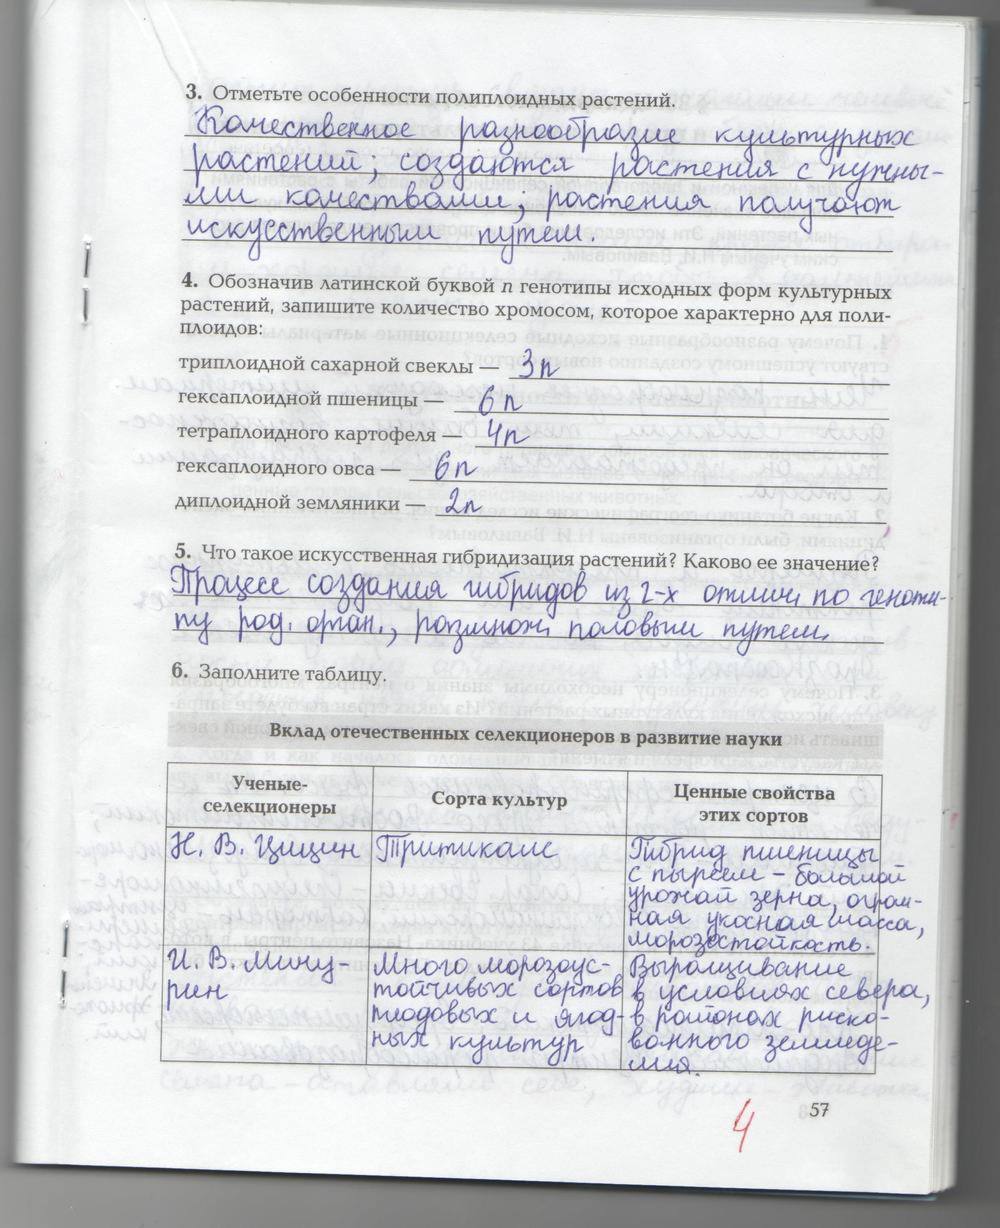 3. Отметьте особенности полиплоидных растений.
Качественное разнообразие культурных
растений; создаются растения с нужны-
ми качествами, растения получают
искусственным путем.
4. Обозначив латинской буквой n генотипы исходных форм культурных
растений, запишите количество хромосом, которое характерно для поли-
плоидов:
триплоидной сахарной свеклы — 3n
гексаплоидной пшеницы — 6n
тетраплоидного картофеля — 4n
гексаплоидного овса — 6n
диплоидной земляники — 2n
5. Что такое искусственная гибридизация растений? Каково ее значение?
Процесс создания гибридов из 2-х отлич. по геноти-
пу род. орган., размнож. половым путем.
6. Заполните таблицу.
Вклад отечественных селекционеров в развитие науки
Ученые-
селекционеры
Сорта культур
Ценные свойства
этих сортов
Н. В. Цицин
Тритикале
Гибрид пшеницы
с пыреем – большой
урожай зерна, огром-
ная укосная масса,
морозостойкость.
И. В. Мичу-
рин
Много морозоус-
тойчивых сортов
плодовых и ягод-
ных культур
Выращивание
в условиях севера,
в районах риско-
ванного земледе-
лия.
57
4